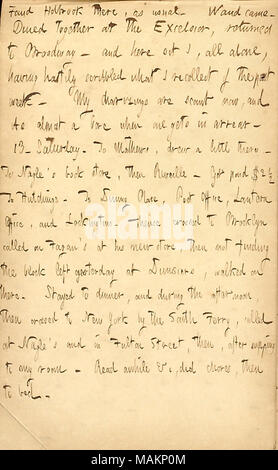 found Holbrook there, as usual. Waud came.
Dined together at the Excelsior, returned
to Broadway - and here sit I, all alone,
having hastily scribbled what I recollect of the past
week. - My diarysings are scant now, and
its almost a bore when one gets in arrear -
13. Saturday. To Mathews, drew a little there.
To Nagle's book store, then Picayune. Got paid $2½
To Huldings. To Spruce Place, Post Office, Lantern
Office, and Lockington. Thence crossed to Brooklyn
called on Fagan's at his new store, then not finding
the block left yesterday at Dunsiers, walked on
there. Stayed to dinner, and during the afternoon,
then crossed to New York by the South Ferry, called
at Nagle's and in Fulton Street, then, after supping
to my room - Read awhile &c, did chores, then
to bed.
alamy
Image ID: MAKP0M
www.alamy.com